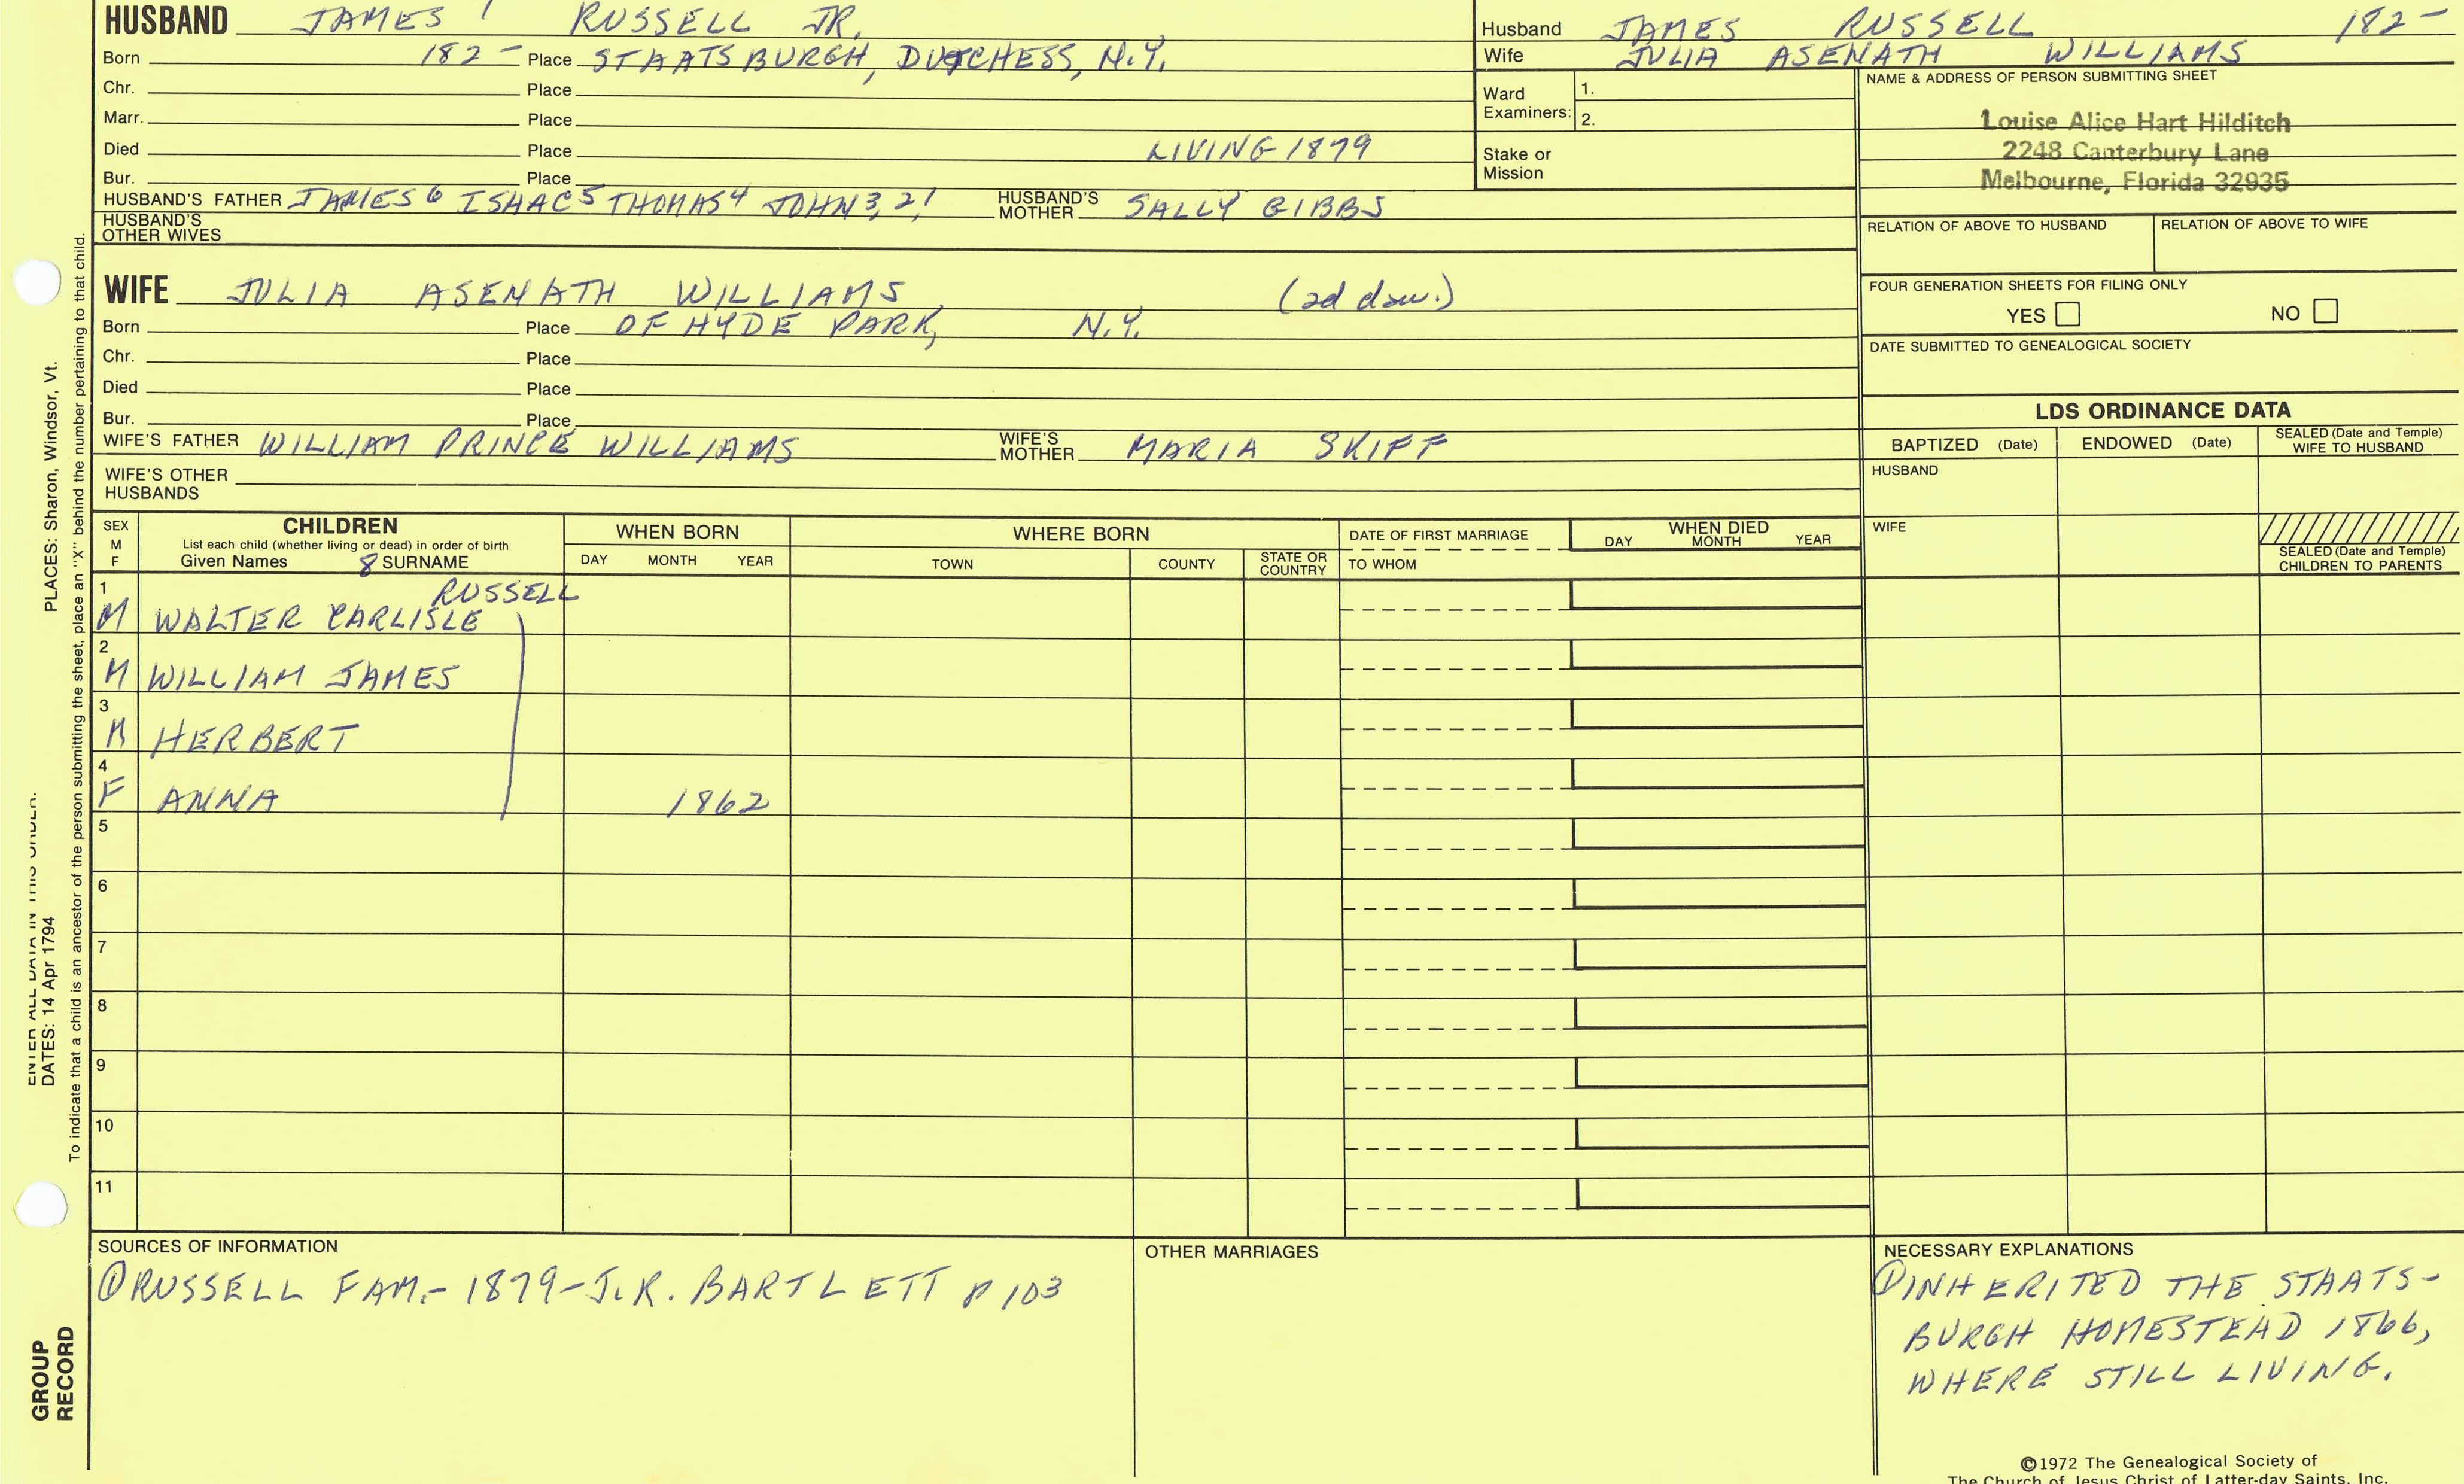 HUSBAND JAMES 7 RUSSELL JR.
Born 182- Place STAATSBURGH, DUTCHESS, N.Y.
Chr. Place
Marr. Place
Died Place LIVING 1879
Bur. Place
HUSBAND'S FATHER JAMES 6 ISHAC 5 THOMAS 4 JOHN 3,2,1 HUSBAND'S MOTHER SALLY GIBBS
HUSBAND'S OTHER WIVES
Husband JAMES RUSSELL 182-
Wife JULIA ASENATH WILLIAMS
Ward Examiners: 1.
2.
Stake or Mission
NAME & ADDRESS OF PERSON SUBMITTING SHEET
Louise Alice Hart Hilditch
2248 Canterbury Lane
Melbourne, Florida 32935
RELATION OF ABOVE TO HUSBAND RELATION OF ABOVE TO WIFE
FOUR GENERATION SHEETS FOR FILING ONLY
YES NO
DATE SUBMITTED TO GENEALOGICAL SOCIETY
WIFE JULIA ASENATH WILLIAMS (2d dau.)
Born Place OF HYDE PARK, N.Y.
Chr. Place
Died Place
Bur. Place
WIFE'S FATHER WILLIAM PRINCE WILLIAMS WIFE'S MOTHER MARIA SKIFF
WIFE'S OTHER HUSBANDS
LDS ORDINANCE DATA
BAPTIZED (Date) ENDOWED (Date) SEALED (Date and Temple) WIFE TO HUSBAND
HUSBAND
WIFE
SEALED (Date and Temple) CHILDREN TO PARENTS
SEX M F
CHILDREN
List each child (whether living or dead) in order of birth
Given Names 8 SURNAME
WHEN BORN
DAY MONTH YEAR
WHERE BORN
TOWN COUNTY STATE OR COUNTRY
DATE OF FIRST MARRIAGE
TO WHOM
WHEN DIED
DAY MONTH YEAR
1 RUSSELL
M WALTER CARLISLE
2
M WILLIAM JAMES
3
M HERBERT
4
F ANNA 1862
5
6
7
8
9
10
11
SOURCES OF INFORMATION
① RUSSELL FAM.- 1879-J.R. BARTLETT P 103
OTHER MARRIAGES
NECESSARY EXPLANATIONS
① INHERITED THE STAATS-
BURGH HOMESTEAD 1866,
WHERE STILL LIVING.
©1972 The Genealogical Society of
The Church of Jesus Christ of Latter-day Saints, Inc.
ENTER ALL DATA IN THIS ORDER:
DATES: 14 Apr 1794 PLACES: Sharon, Windsor, Vt.
To indicate that a child is an ancestor of the person submitting the sheet, place an "X" behind the number pertaining to that child.
GROUP
RECORD